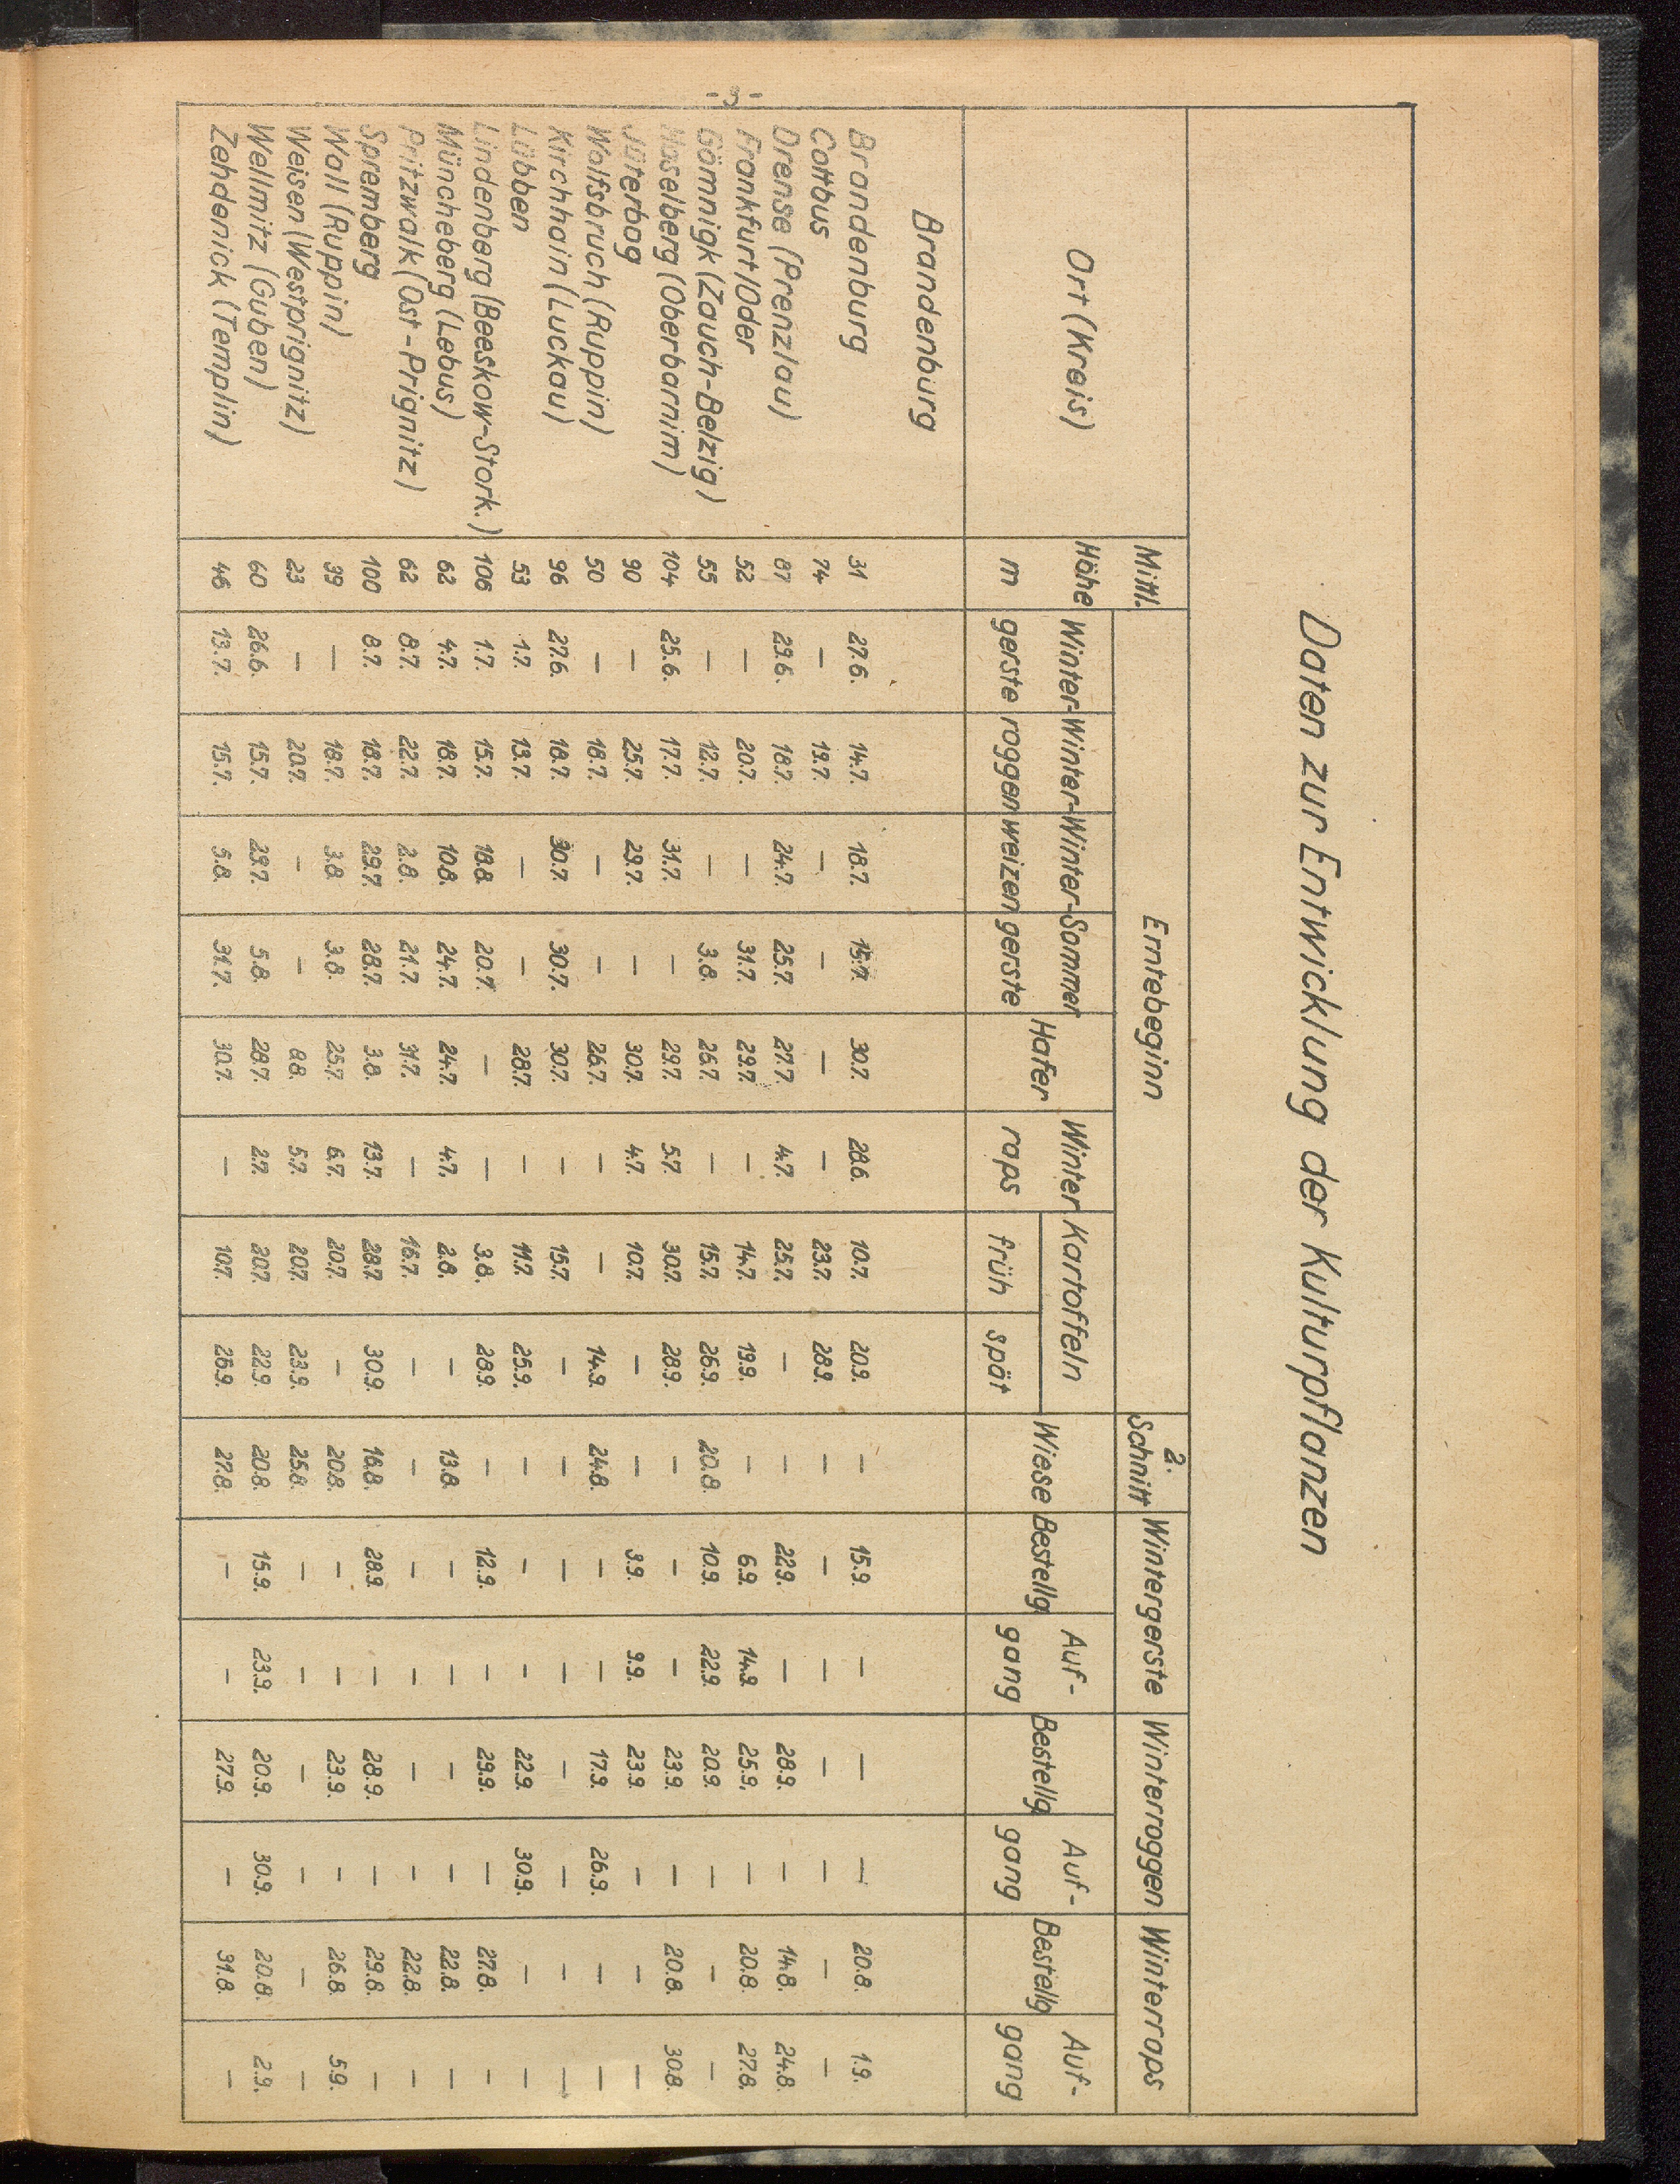 - 3 -
Daten zur Entwicklung der Kulturpflanzen
Ort (Kreis) Mittl. Höhe m Erntebeginn 2. Schnitt Wintergerste Winterroggen Winterraps
Winter-gerste Winter-roggen Winter-weizen Sommer gerste Hafer Winter raps Kartoffeln früh spät Wiese Bestellg Auf-gang Bestellg Auf-gang Bestellg Auf-gang
Brandenburg
Brandenburg 31 27.6. 14.7. 18.7. 15.7. 30.7. 28.6. 10.7. 20.9. — 15.9. — — — 20.8. 1.9.
Cottbus 74 — 19.7. — — — — 23.7. 28.9. — — — — — — —
Drense (Prenzlau) 87 29.6. 18.7. 24.7. 25.7. 27.7. 4.7. 25.7. — — 22.9. — 28.9. — 14.8. 24.8.
Frankfurt/Oder 52 — 20.7. — 31.7. 29.7. — 14.7. 19.9. — 6.9. 14.9. 25.9. — 20.8. 27.8.
Gömnigk (Zauch-Belzig) 55 — 12.7. — 3.8. 26.7. — 15.7. 26.9. 20.8. 10.9. 22.9. 20.9. — — —
Haselberg (Oberbarnim) 104 25.6. 17.7. 31.7. — 29.7. 5.7. 30.7. 28.9. — — — 23.9. — 20.8. 30.8.
Jüterbog 90 — 25.7. 29.7. — 30.7. 4.7. 10.7. — — 3.9. 9.9. 23.9. — — —
Walfsbruch (Ruppin) 50 — 18.7. — — 26.7. — — 14.9. 24.8. — — 17.9. 26.9. — —
Kirchhain (Luckau) 96 27.6. 18.7. 30.7. 30.7. 30.7. — 15.7. — — — — — — — —
Lübben 53 1.7. 13.7. — — 28.7. — 11.7. 25.9. — — — 22.9. 30.9. — —
Lindenberg (Beeskow-Stork.) 106 1.7. 15.7. 18.8. 20.7. — — 3.8. 28.9. — 12.9. — 29.9. — 27.8. —
Müncheberg (Lebus) 62 4.7. 18.7. 10.8. 24.7. 24.7. 4.7. 2.8. — 13.8. — — — — 22.8. —
Pritzwalk (Ost-Prignitz) 62 8.7. 22.7. 2.8. 21.7. 31.7. — 16.7. — — — — — — 22.8. —
Spremberg 100 8.7. 18.7. 29.7. 28.7. 3.8. 13.7. 28.7. 30.9. 16.8. 28.9. — 28.9. — 29.8. —
Wall (Ruppin) 39 — 18.7. 3.8. 3.8. 25.7. 6.7. 20.7. — 20.8. — — 23.9. — 26.8. 5.9.
Weisen (Westprignitz) 23 — 20.7. — — 8.8. 5.7. 20.7. 23.9. 25.8. — — — — — —
Wellmitz (Guben) 60 26.6. 15.7. 29.7. 5.8. 28.7. 2.7. 20.7. 22.9. 20.8. 15.9. 23.9. 20.9. 30.9. 20.8. 2.9.
Zehdenick (Templin) 46 13.7. 15.7. 5.8. 31.7. 30.7. — 10.7. 26.9. 27.8. — — 27.9. — 31.8. —